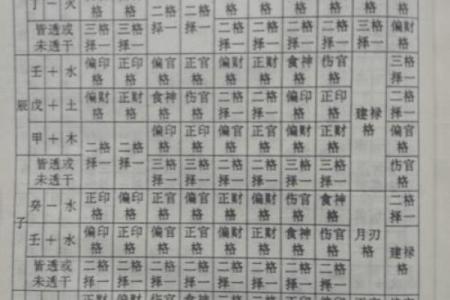 丁 一 火 格 格 二格 二格 格 格 格 格 格 格
皆透或 三格 三格 择一 择一 二格 二格 二格 二格 三格 偏财
未透干 择一 择一 择一 择一 择一 择一 择一 格
壬 + 水 偏印 正印 偏官 正官 偏财 正财 食神 伤官 三格
格 格 格 格 格 格 格 格 择一
辰 戊 + 土 偏财 正财 食神 伤官 二格 二格 偏印 正印 二格
格 格 格 格 择一 择一 格 格 建禄 择一
甲 + 木 二格 二格 偏印 正印 偏官 正官 偏财 正财 格 偏官
择一 择一 格 格 格 格 格 格 格
皆透或 三格 三格 二格 二格 三格 三格 伤官
未透干 择一 择一 择一 择一 择一 择一 格
癸 一 水 正印 偏印 正官 偏官 正财 偏财 伤官 食神 二格
格 格 格 格 格 格 格 格 择一
子 壬 + 水 偏印 正印 偏官 正官 偏财 正财 食神 伤官 月刃 建禄
格 格 格 格 格 格 格 格 格 格
皆透或 二格 二格 二格 二格 二格 二格 二格 二格
未透干 择一 择一 择一 择一 择一 择一 择一 择一